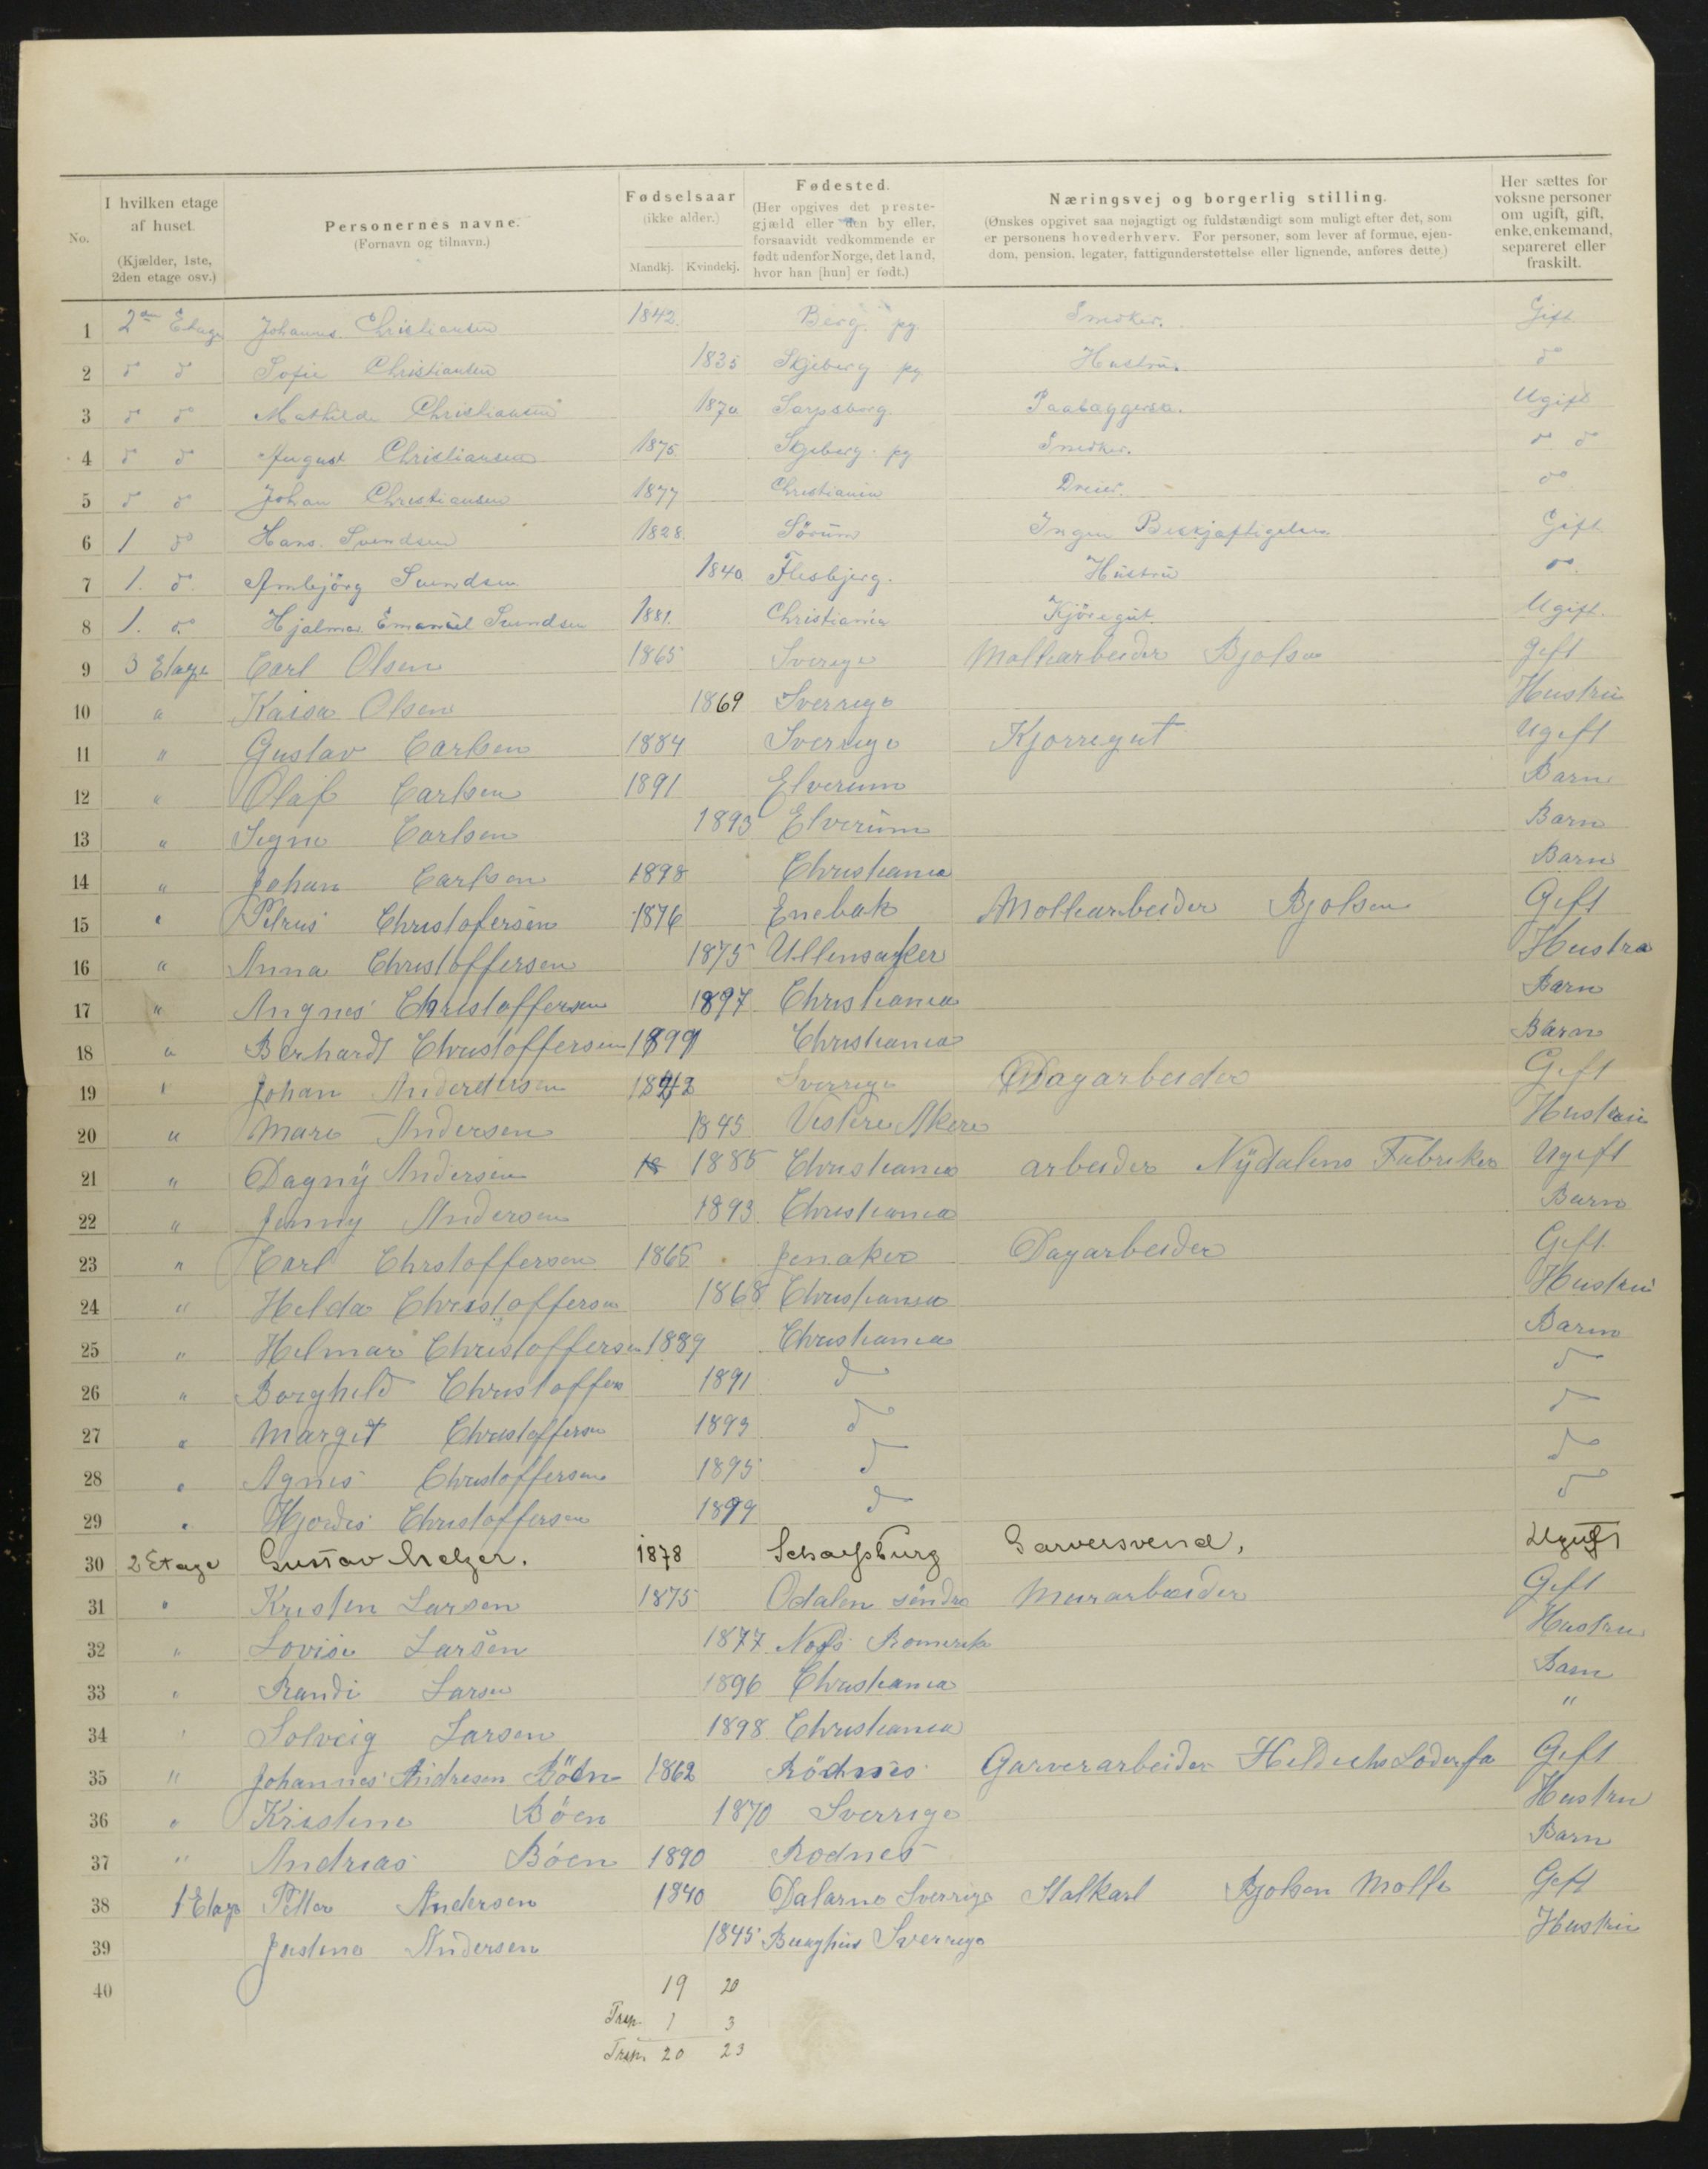 No.
I hvilken etage af huset. (Kjælder, 1ste, 2den etage osv.)
Personernes navne. (Fornavn og tilnavn.)
Fødselsaar (ikke alder.) Mandkj. Kvindekj.
Fødested. (Her opgives det prestegjæld eller den by eller, forsaavidt vedkommende er født udenfor Norge, det land, hvor han [hun] er født.)
Næringsvej og borgerlig stilling. (Ønskes opgivet saa nøjagtigt og fuldstændigt som muligt efter det, som er personens hovederhverv. For personer, som lever af formue, ejendom, pension, legater, fattigunderstøttelse eller lignende, anføres dette.)
Her sættes for voksne personer om ugift, gift, enke, enkemand, separeret eller fraskilt.
1 2den Etage Johannes Christiansen 1842. Berg pg. Snedker. Gift
2 do do Sofie Christiansen 1835 Skjeberg pg Hustru. do
3 do do Mathilde Christiansen 1870 Sarpsborg. Ugift
4 do do August Christiansen 1875 Skjeberg pg Snedker. do do
5 do do Johan Christiansen 1877 Christiania Dreier. do
6 1 do Hans. Svendsen 1828. Sörum Ingen Beskjæftigelse. Gift
7 1. do. Ambjörg Svendsen 1840 Flesbjerg. Hustru do.
8 1. do. Hjalmar Emanuel Svendsen 1881. Christiania Kjöregut. Ugift.
9 3 Etage Carl Olsen 1865 Sverige Mollearbeider Bjolsen gift
10 " Kaisa Olsen 1869 Sverrige Hustru
11 " Gustav Carlsen 1884 Sverrige Kjorregut Ugift
12 " Olaf Carlsen 1891 Elverum Barn
13 " Signe Carlsen 1893 Elverum Barn
14 " Johan Carlsen 1898 Christiania Barn
15 " Petrus Christofersen 1876 Enebak Mollearbeider Bjolsen Gift
16 " Anna Christoffersen 1875 Ullensaker Hustru
17 " Angnes Christoffersen 1897 Christiania Barn
18 " Berhardt Christoffersen 1899 Christiania Barn
19 " Johan Anderdersen 1842 Sverrige Dagarbeider Gift
20 " Mare Andersen 1845 Vestre Akere Hustru
21 " Dagny Andersen 18 1885 Christiania arbeider Nydalens Fabriker Ugift
22 " Jenny Andersen 1893. Christiania Barn
23 " Carl Chrstoffersen 1865 Jenaker Dagarbeider Gift
24 " Helda Christoffersen 1868 Christiania Hustru
25 " Helmar Christoffersen 1889 Christiania Barn
26 " Borghild Christoffers 1891 do do
27 " Margit Christoffersen 1893 do do
28 " Agnes Christoffersen 1895 do do
29 " Hjordis Christoffersen 1899 do do
30 2 Etage Gustav Melzer. 1878 Garversvend, Ugift
31 " Kristen Larsen 1875 Odalen söndre Murarbeider Gift
32 " Lovise Larsen 1877 Næs Romerike Hustru
33 " Randi Larsen 1896 Christiania Barn
34 " Solveig Larsen 1898 Christiania "
35 " Johannes Andresen Böen 1862 Rödnes Garverarbeider Gift
36 " Kristine Böen 1870 Sverrige Hustru
37 " Andreas Böen 1890 Rodnes Barn
38 1 Etage Petter Andersen 1840 Dalarne Sverrige Stalkarl Bjolsen Molle Gift
39 Justine Andersen 1845 Sverrige Hustru
40
19 20
Trsp. 1 3
Trsp. 20 23